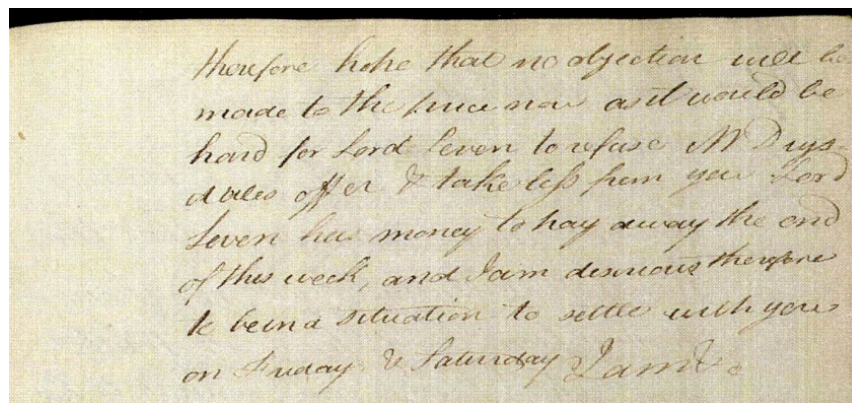 therefore hope that no objection will be
made to the price now as it would be
hard for Lord Leven to refuse Mr Drys-
dales offer & take less from you Lord
Leven has money to pay away the end
of this week, and I am desirous therefore
to be in a situation to settle with you
on Friday & Saturday I am &c